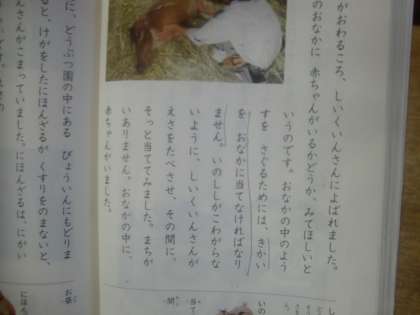 がおわるころ、しいくいんさんによばれました。
のおなかに 赤ちゃんがいるかどうか、みてほしいと
いうのです。おなかの中のよう
すを さぐるためには、きかい
を おなかに当てなければなり
ません。いのししがこわがらな
いように、しいくいんさんが
えさをたべさせ、その間に、
そっと当ててみました。まちが
いありません。おなかの中に、
赤ちゃんがいました。
に、どうぶつ園の中にある びょういんにもどりま
ると、けがをしたにほんざるが くすりをのまないと、
んさんがこまっていました。にほんざるは、にがい